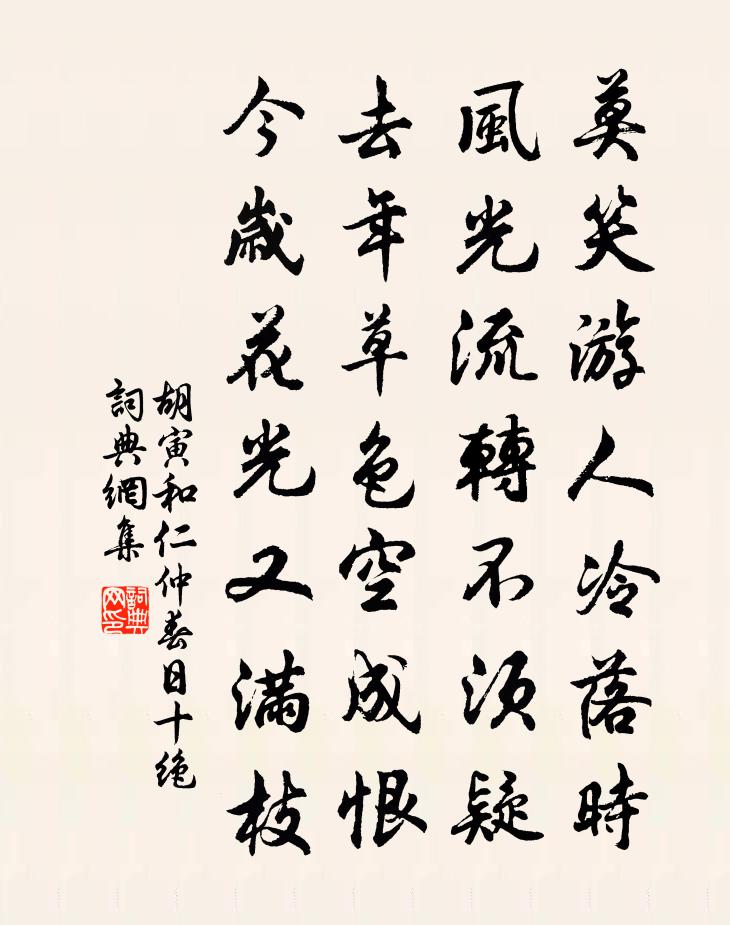 莫笑游人冷落時
風光流轉不須疑
去年草色空成恨
今歲花光又滿枝
胡寅和仁仲春日十絶
詞典網集
詞典网印